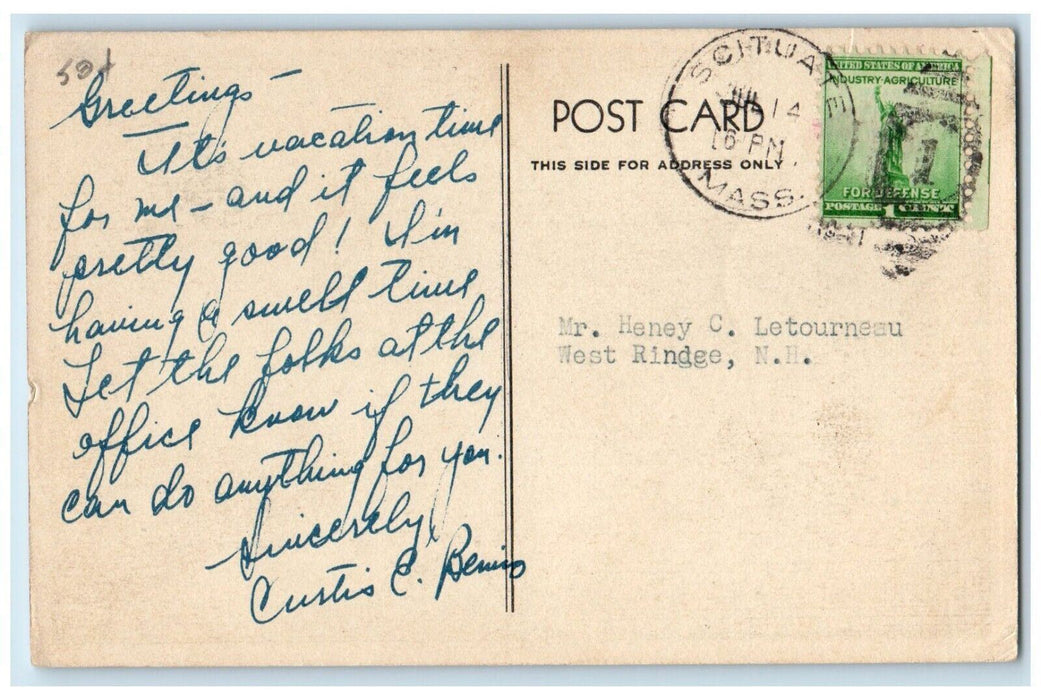 Greetings —
It's vacation time
for me — and it feels
pretty good! I'm
having a swell time
Let the folks at the
office know if they
can do anything for you.
Sincerely,
Curtis E. Bemis
POST CARD
THIS SIDE FOR ADDRESS ONLY
SCITUATE
JUL 14
6 PM
MASS.
UNITED STATES OF AMERICA
INDUSTRY·AGRICULTURE
FOR DEFENSE
POSTAGE 1 CENT
Mr. Heney C. Letourneau
West Rindge, N.H.